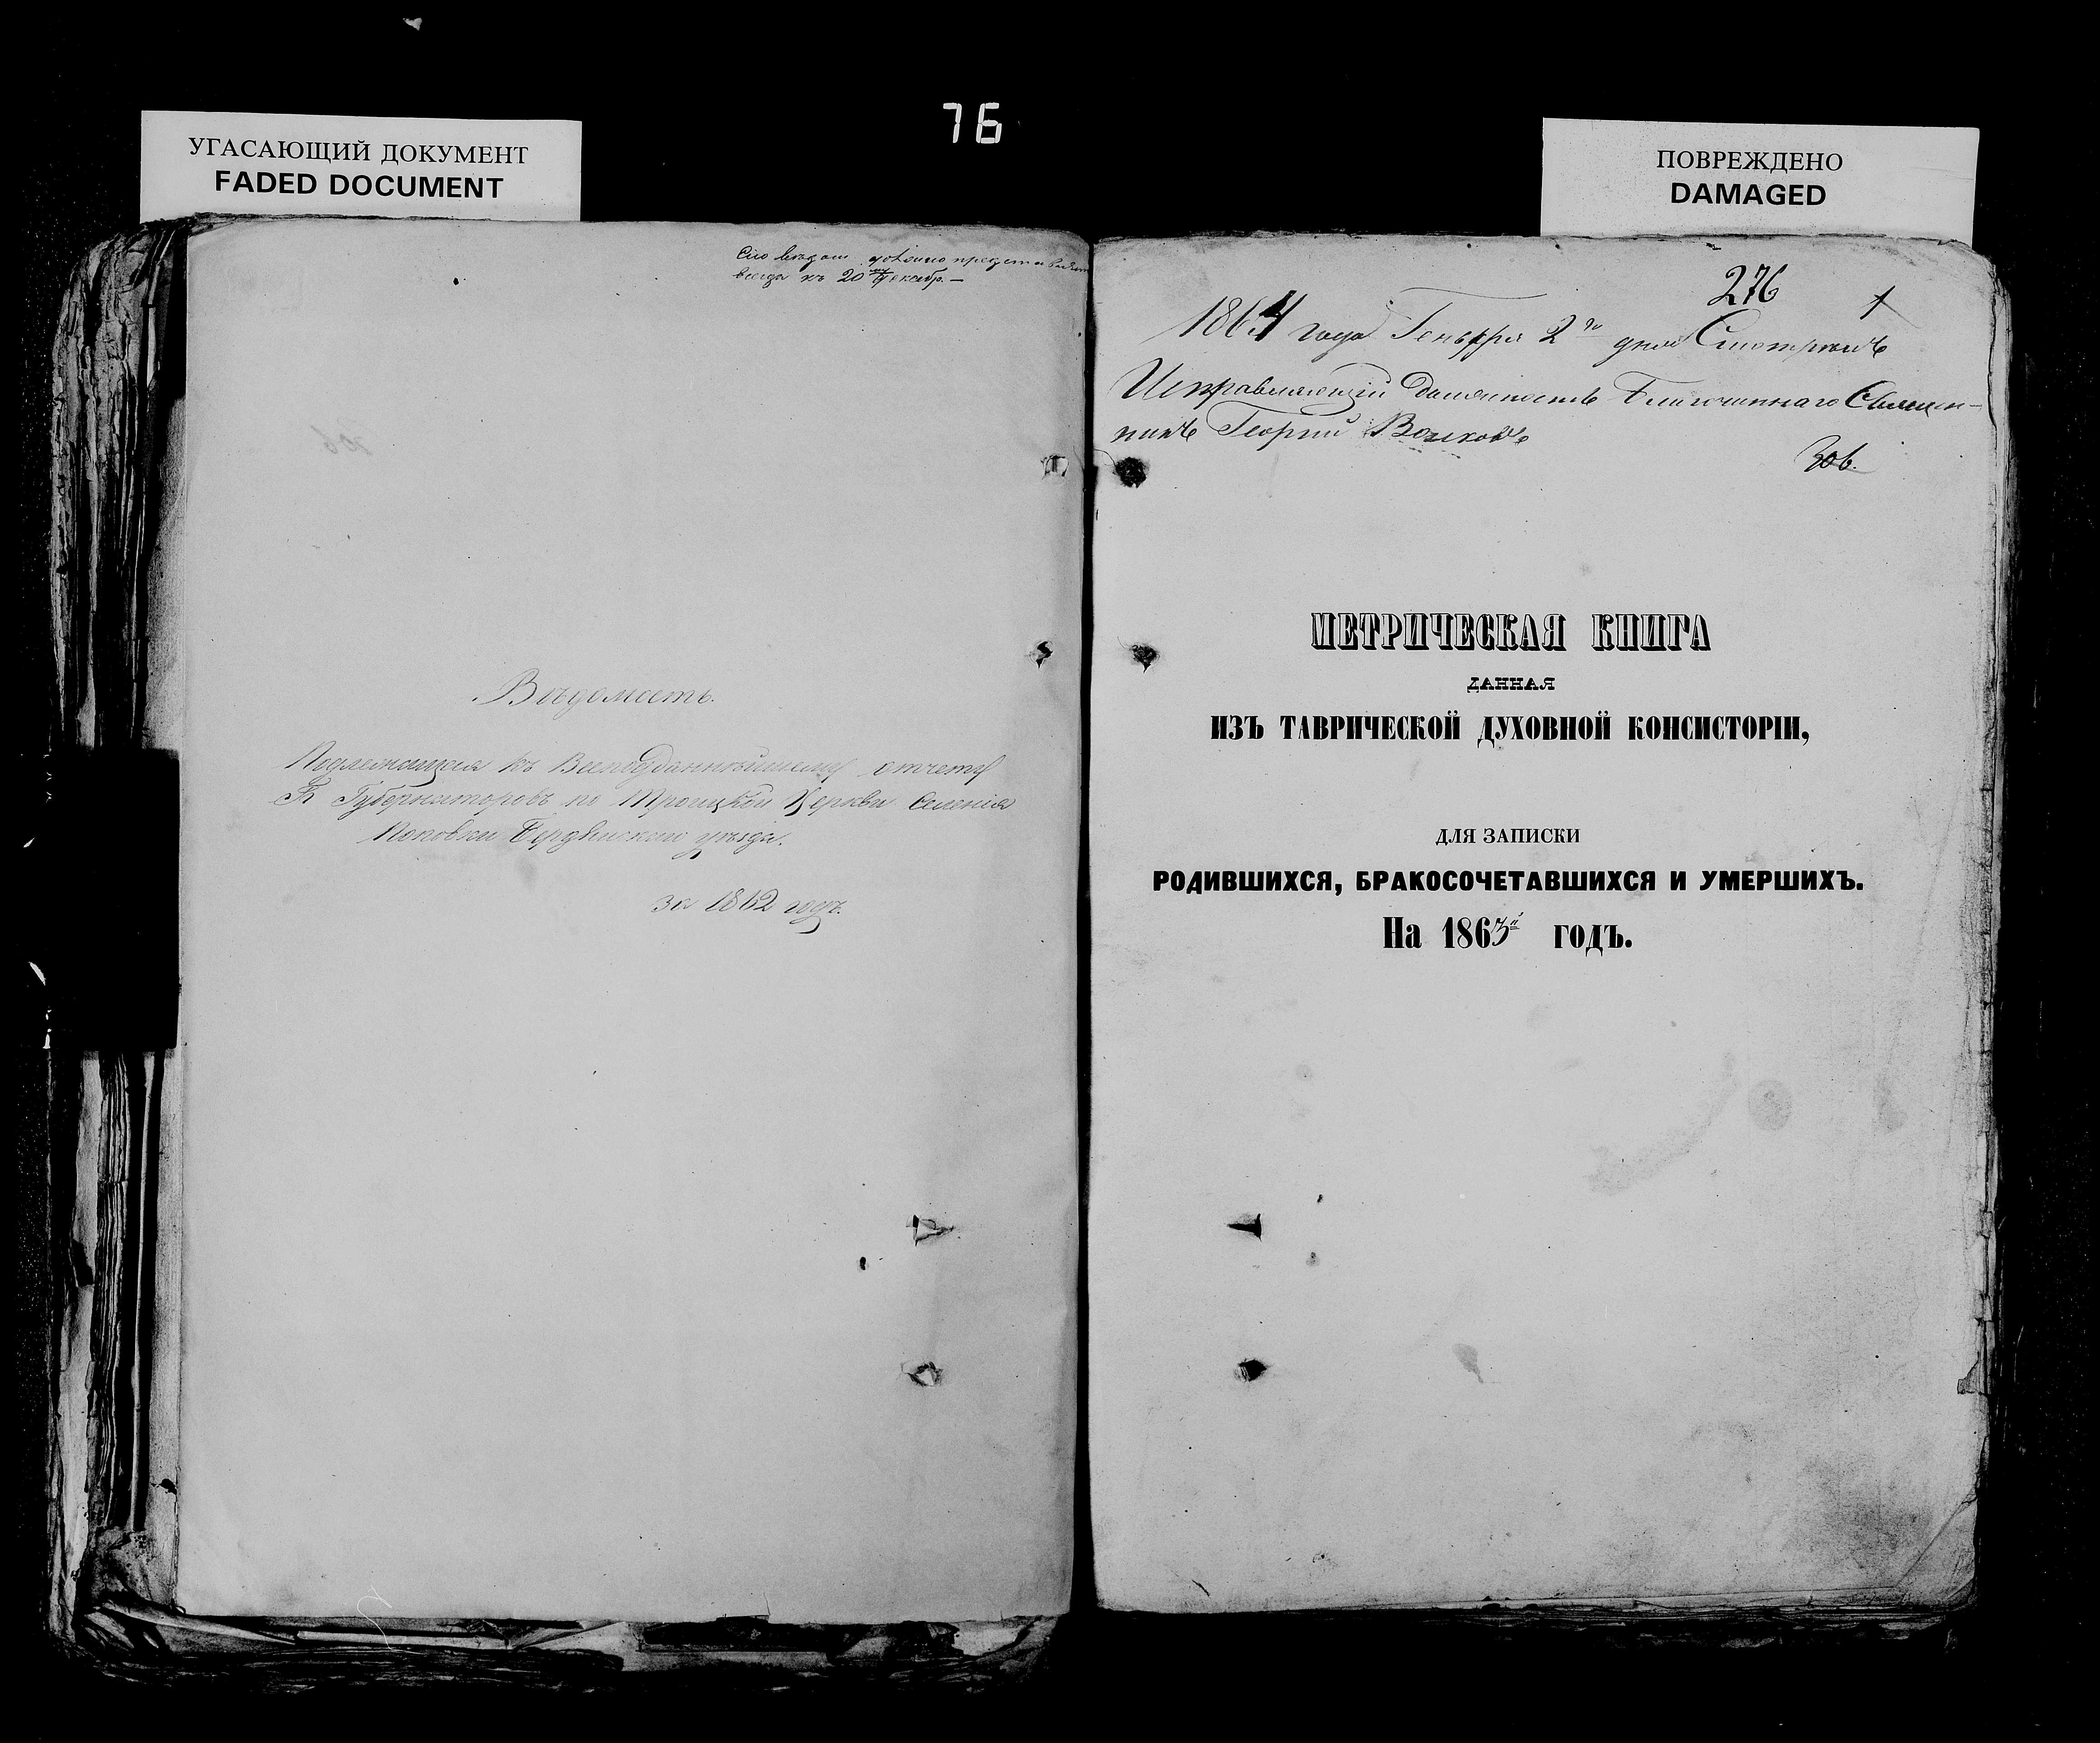 76
УГАСАЮЩИЙ ДОКУМЕНТ
FADED DOCUMENT
ПОВРЕЖДЕНО
DAMAGED
Сію должно представлять
всегда къ 20 Декабр. —
Вѣдомость
Подлежащая къ Всеподданнѣйшему отчету
Г. Губернаторовъ по Троицкой Церкви Селенія
Поповки Бердянскаго уѣзда.
за 1862 годъ.
276
1864 года Генваря 2го дня Смотрѣлъ
Исправляющій должность Благочиннаго Священ-
никъ Георгій Волковъ
306.
МЕТРИЧЕСКАЯ КНИГА
ДАННАЯ
ИЗЪ ТАВРИЧЕСКОЙ ДУХОВНОЙ КОНСИСТОРІИ,
ДЛЯ ЗАПИСКИ
РОДИВШИХСЯ, БРАКОСОЧЕТАВШИХСЯ И УМЕРШИХЪ.
На 1863й годъ.